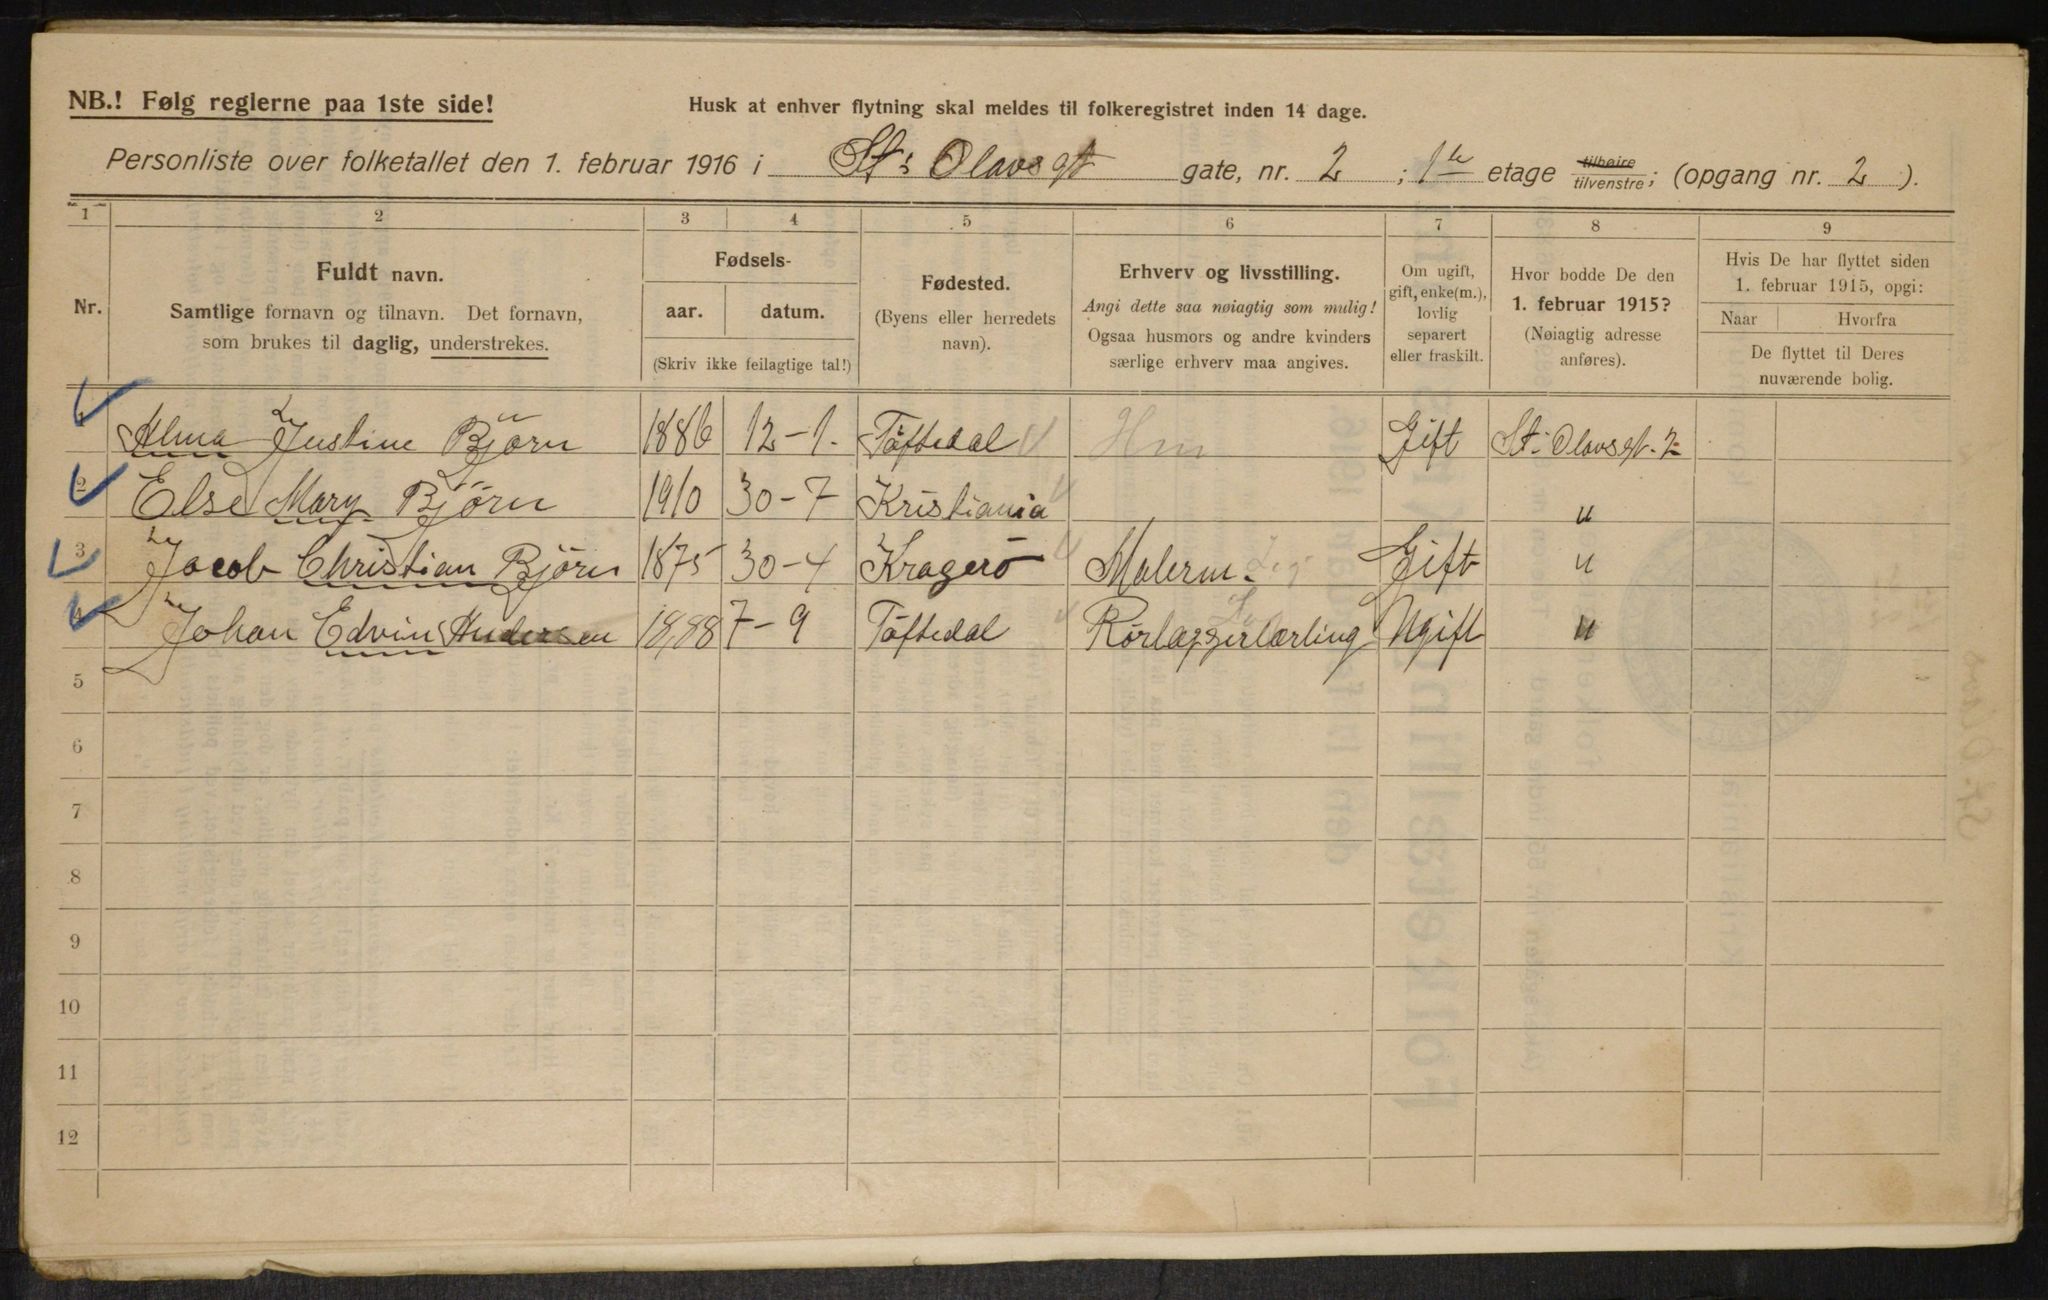 NB.! Følg reglerne paa 1ste side!
Husk at enhver flytning skal meldes til folkeregistret inden 14 dage.
Personliste over folketallet den 1. februar 1916 i St: Olavs gt gate, nr. 2 ; 1ste etage tilhøire tilvenstre; (opgang nr. 2 ).
1 2 3 4 5 6 7 8 9
Nr.
Fuldt navn.
Samtlige fornavn og tilnavn. Det fornavn,
som brukes til daglig, understrekes.
Fødsels-
aar. datum.
(Skriv ikke feilagtige tal!)
Fødested.
(Byens eller herredets
navn).
Erhverv og livsstilling.
Angi dette saa nøiagtig som mulig!
Ogsaa husmors og andre kvinders
særlige erhverv maa angives.
Om ugift,
gift, enke(m.),
lovlig
separert
eller fraskilt.
Hvor bodde De den
1. februar 1915?
(Nøiagtig adresse
anføres).
Hvis De har flyttet siden
1. februar 1915, opgi:
Naar Hvorfra
De flyttet til Deres
nuværende bolig.
1 Alma Justine Björn 1886 12-1. Töftedal Hm Gift St: Olavs gt. 2
2 Else Mary Björn 1910 30-7 Kristiania "
3 Jacob Christian Björn 1875 30-4 Kragerö Malerm. Gift "
4 Johan Edvin Andersen 1888 7-9 Töftedal Rörlæggerlærling Ugift "
5
6
7
8
9
10
11
12